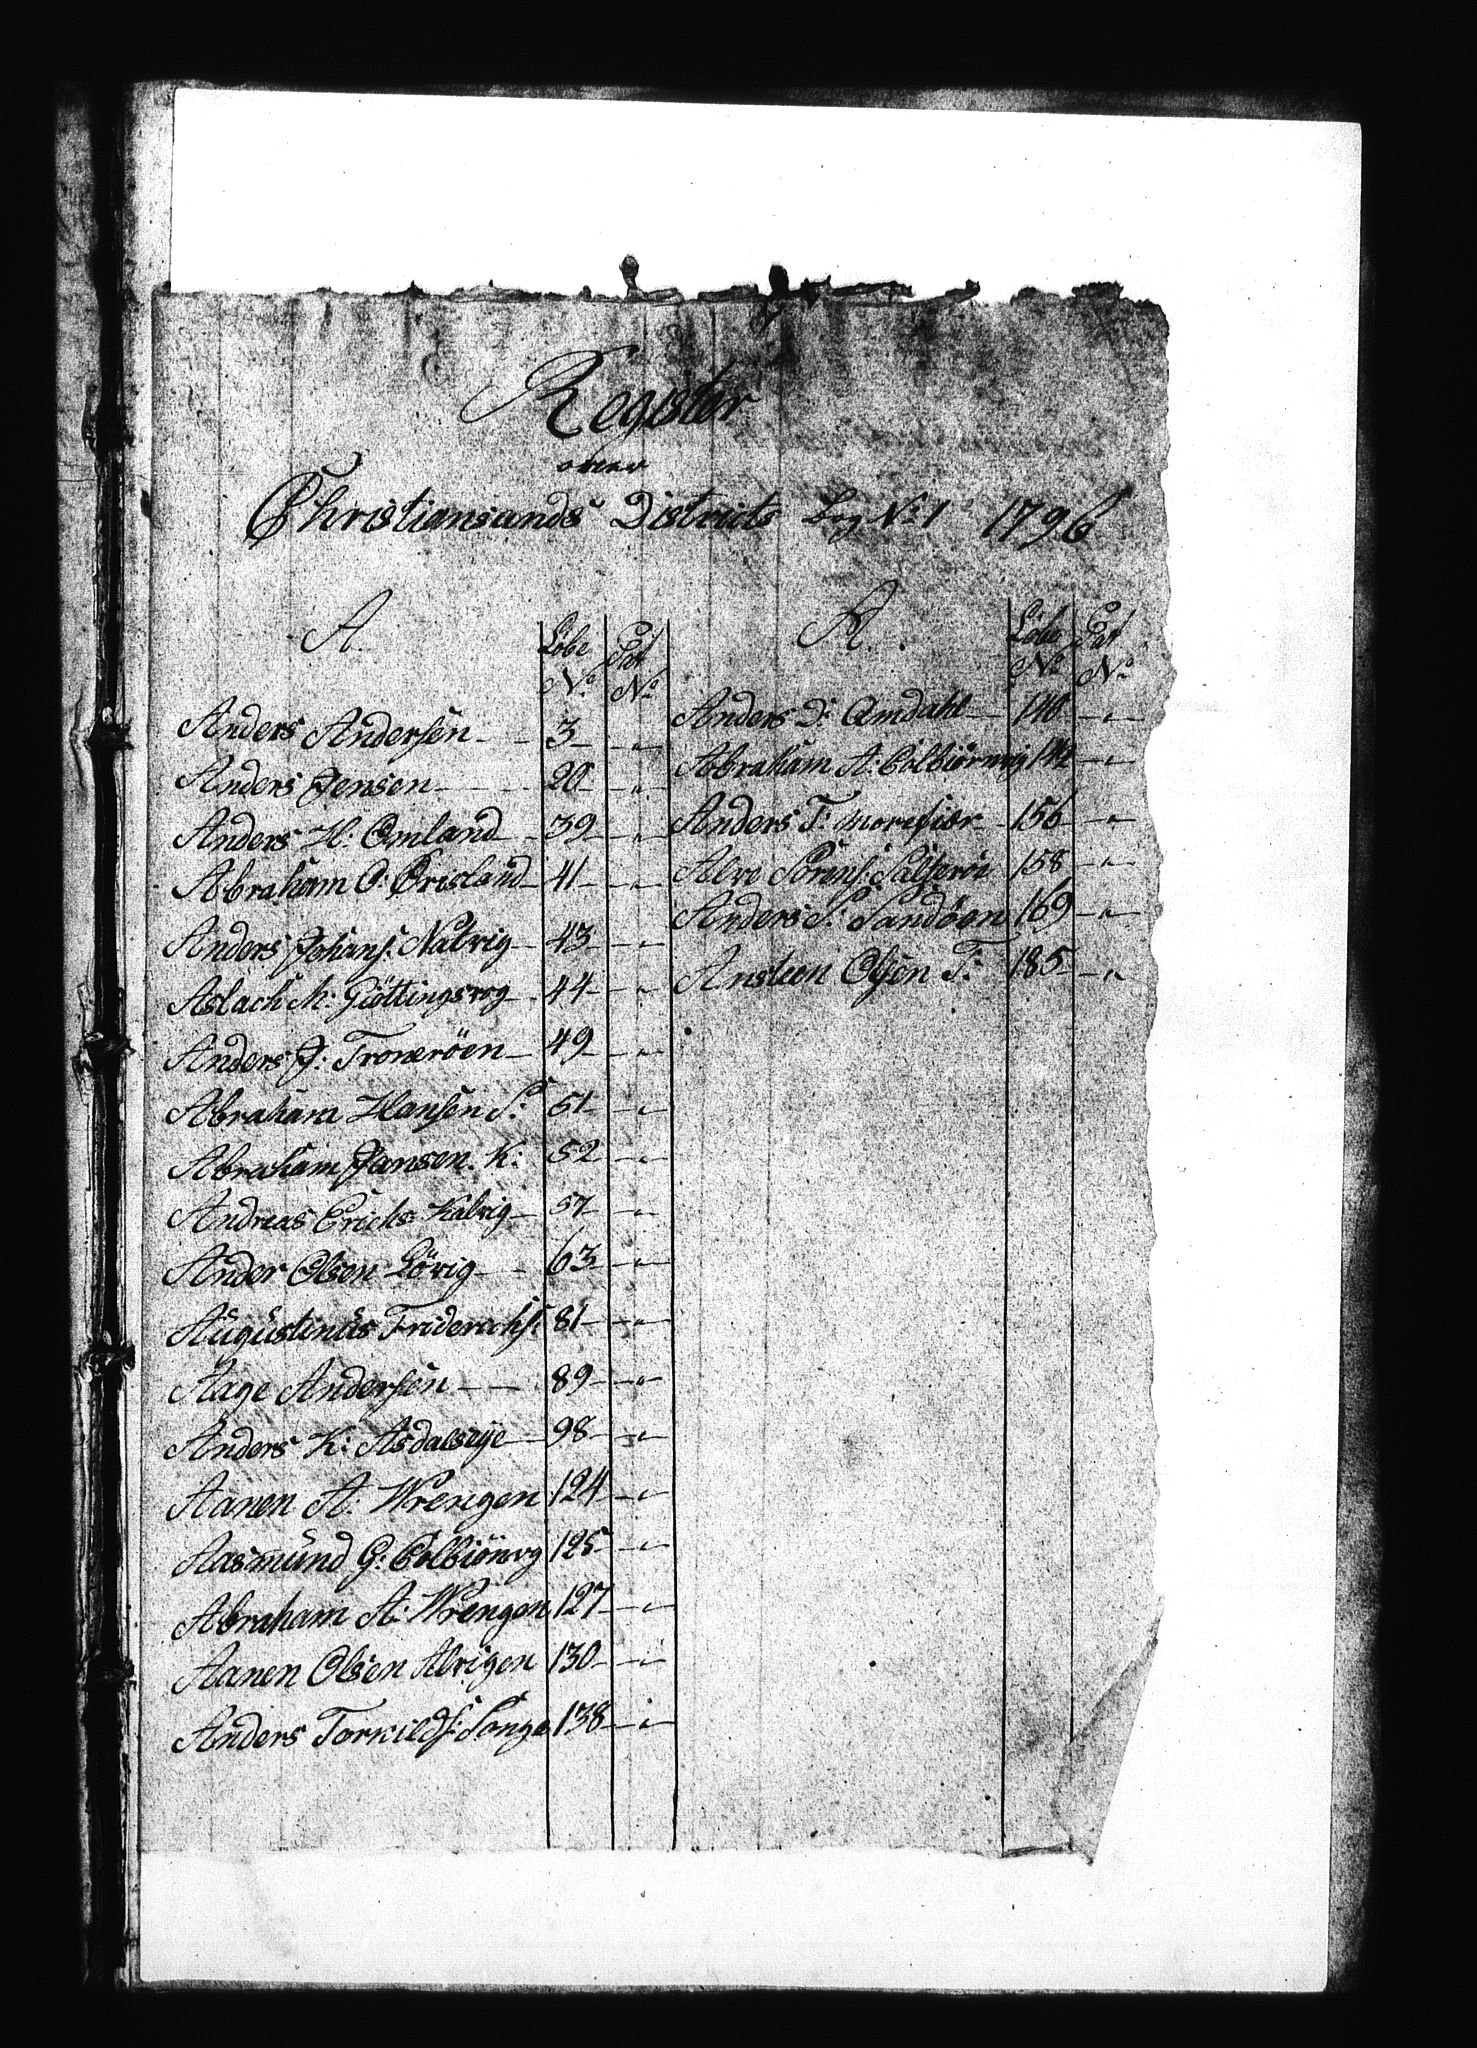 Register
over
Christiansands Districts Læg No 1 1796
A.
Löbe No
Pat No
Anders Andersen 3 "
Anders Jensen 20 "
Anders H: Omland 39 "
Abraham O: Brisland 41 "
Anders Johans: Natvig 43 "
Aslach K: Giöttingsvog 44 "
Anders J: Troneröen 49 "
Abraham Hansen S: 51 "
Abraham Jansen K: 52 "
Andreas Erichs: Kalvig 57 "
Ander Olsen Lövig 63 "
Augustinus Friderichs: 81 "
Aage Andersen 89 "
Anders K: Asdalseye 98 "
Aanen A: Wrengen 124 "
Aasmund G: Colbiönvg 125 "
Abraham A: Wrengen 127 "
Aanen Olsen Alvigen 130 "
Anders Torkilds: Songe 138 "
A.
Löbe No
Pat No
Anders D: Omdahl 140 "
Abraham A: Colbiörnvig 142 "
Anders T: Morefiær 156 "
Alve Sörens: Salteröe 158 "
Anders S: Sandöen 169 "
Ansteen Olsen T: 185 "